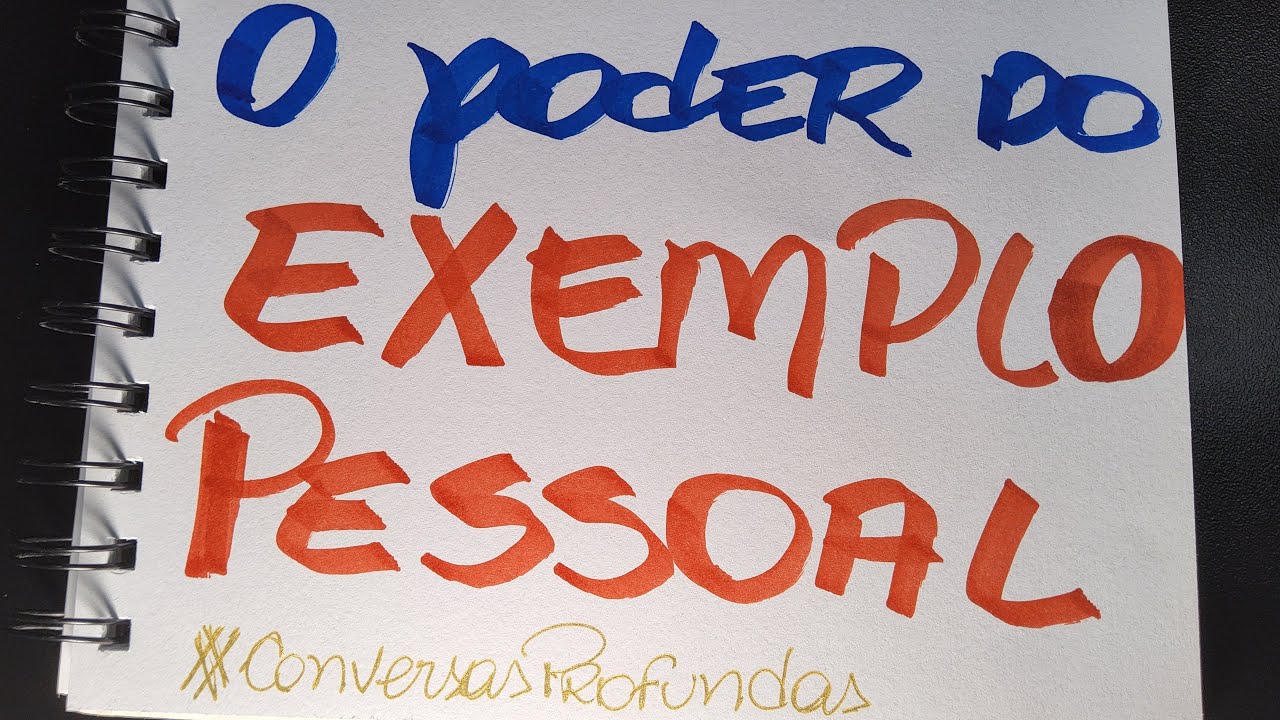 O PODER DO
EXEMPLO
PESSOAL
#ConversasProfundas